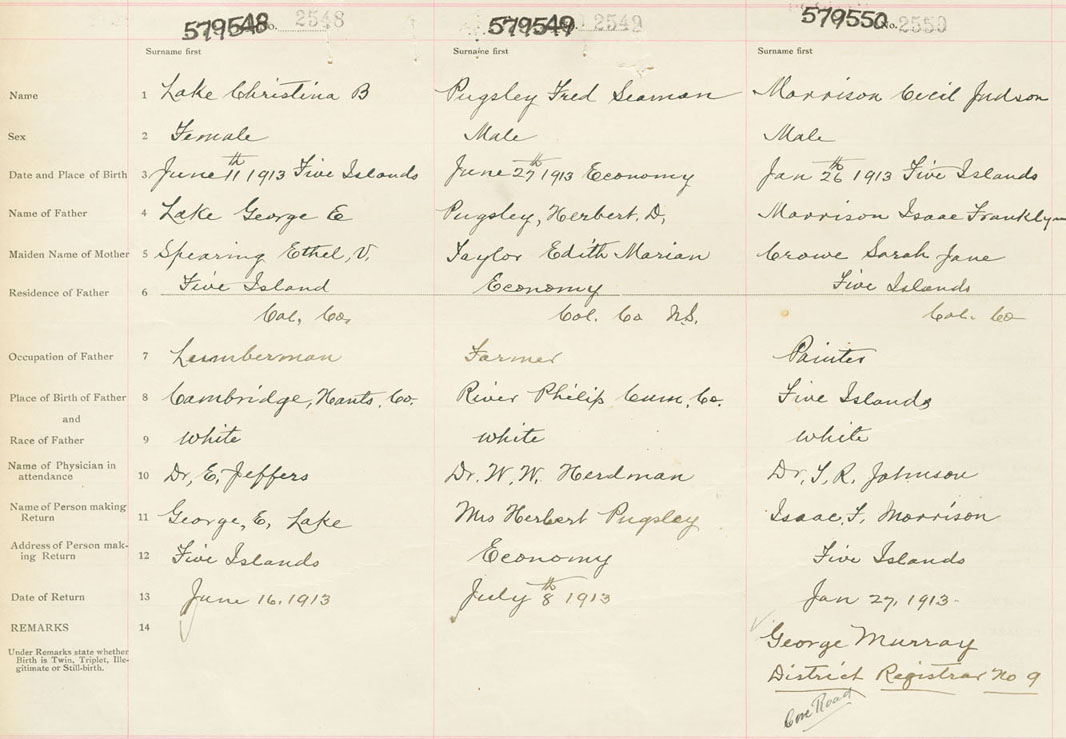 579548 No. 2548 579549 No. 2549 579550 No. 2550
Surname first Surname first Surname first
Name 1 Lake Christina B Pugsley Fred Seaman Morrison Cecil Judson
Sex 2 Female Male Male
Date and Place of Birth 3 June 11th 1913 Five Islands June 27th 1913 Economy Jan 26th 1913 Five Islands
Name of Father 4 Lake George E Pugsley, Herbert. D, Morrison Isaac Franklyn
Maiden Name of Mother 5 Spearing Ethel, V. Taylor Edith Marian Crowe Sarah Jane
Residence of Father 6 Five Island Economy Five Islands
Col, Co, Col. Co N.S. Col. Co
Occupation of Father 7 Lumberman Farmer Painter
Place of Birth of Father 8 Cambridge, Hants, Co. River Philip Cum, Co. Five Islands
and
Race of Father 9 white white white
Name of Physician in
attendance 10 Dr, E, Jeffers Dr. W. W. Herdman Dr, T, R, Johnson
Name of Person making
Return 11 George, E, Lake Mrs Herbert Pugsley Isaac, F, Morrison
Address of Person mak-
ing Return 12 Five Islands Economy Five Islands
Date of Return 13 June 16, 1913 July 8th 1913 Jan 27, 1913-
REMARKS 14 George Murray
Under Remarks state whether
Birth is Twin, Triplet, Ille-
gitimate or Still-birth.
District Registrar No 9
Cove Road